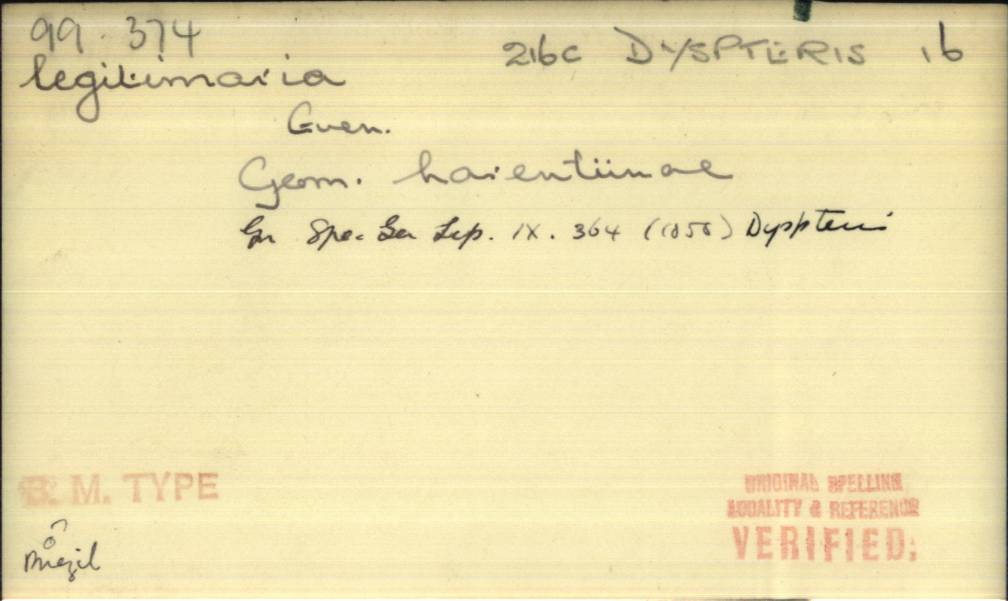 99.374 216c DYSPTERIS 16
legitimaria
Guen.
Geom. Larentiinae
Gn Spe. Gen Lep. IX. 364 (1858) Dyspteris
B. M. TYPE
ORIGINAL SPELLING
LOCALITY & REFERENCE
VERIFIED.
Brazil